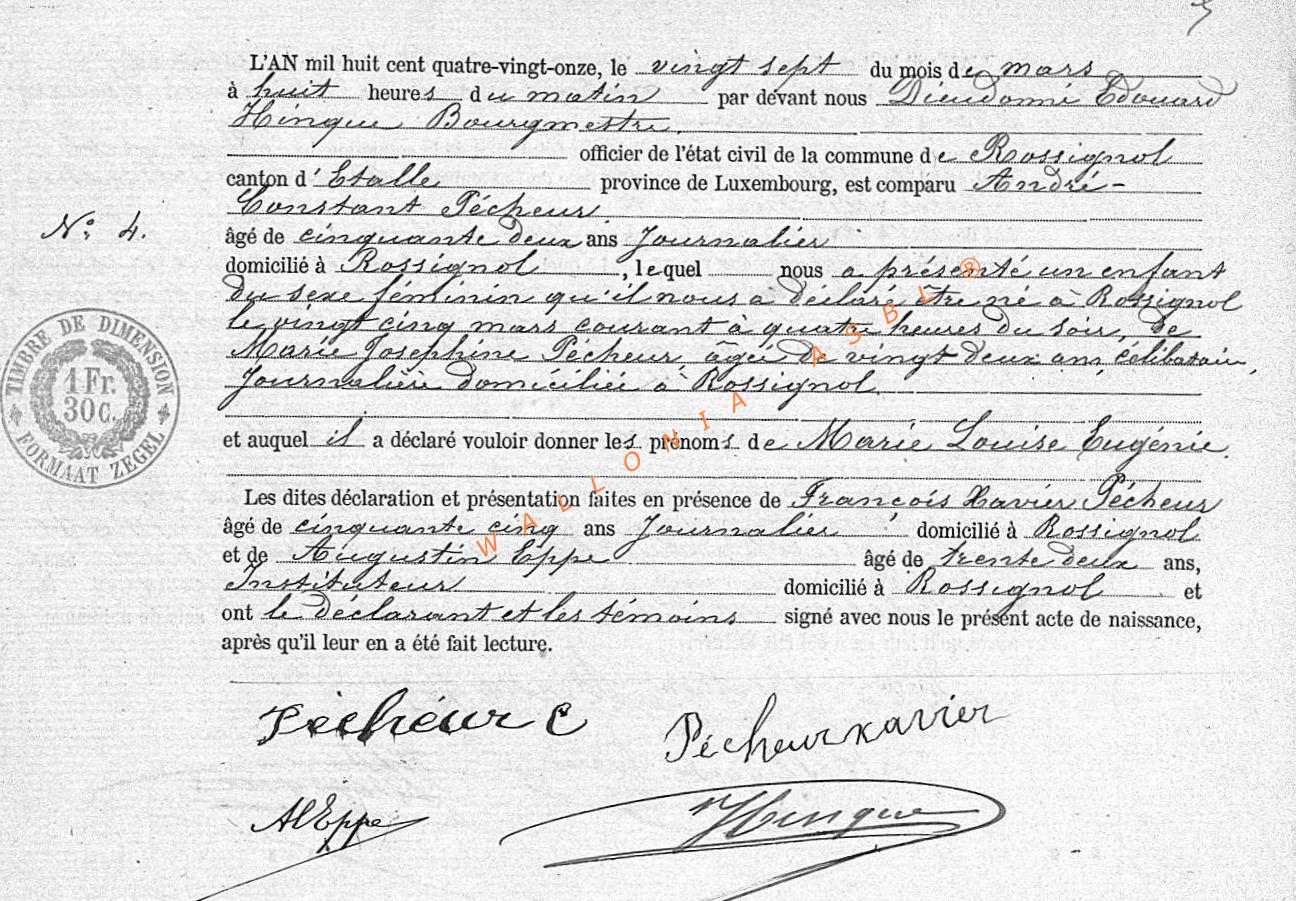 L'AN mil huit cent quatre-vingt-onze, le vingt sept du mois de mars
à huit heures du matin par devant nous Dieudonné Edouard
Hinque Bourgmestre.
officier de l'état civil de la commune de Rossignol
canton d' Etalle province de Luxembourg, est comparu André-
Constant Pécheur
N° 4.
âgé de cinquante deux ans Journalier
domicilié à Rossignol, lequel nous a présenté un enfant
du sexe féminin qu'il nous a déclaré être né à Rossignol
le vingt cinq mars courant à quatre heures du soir, de
Marie Josephine Pécheur âgée de vingt deux ans, célibataire,
Journalière domiciliée à Rossignol.
et auquel il a déclaré vouloir donner les prénoms de Marie Louise Eugénie.
Les dites déclaration et présentation faites en présence de François Xavier Pécheur
âgé de cinquante cinq ans Journalier domicilié à Rossignol
et de Augustin Eppe âgé de trente deux ans,
Instituteur domicilié à Rossignol et
ont le déclarant et les témoins signé avec nous le présent acte de naissance,
après qu'il leur en a été fait lecture.
TIMBRE DE DIMENSION
1 Fr.
30 c.
FORMAAT ZEGEL
WALLONIA ASBL ®
Pécheur C
Pécheur xavier
AlEppe
Hinque